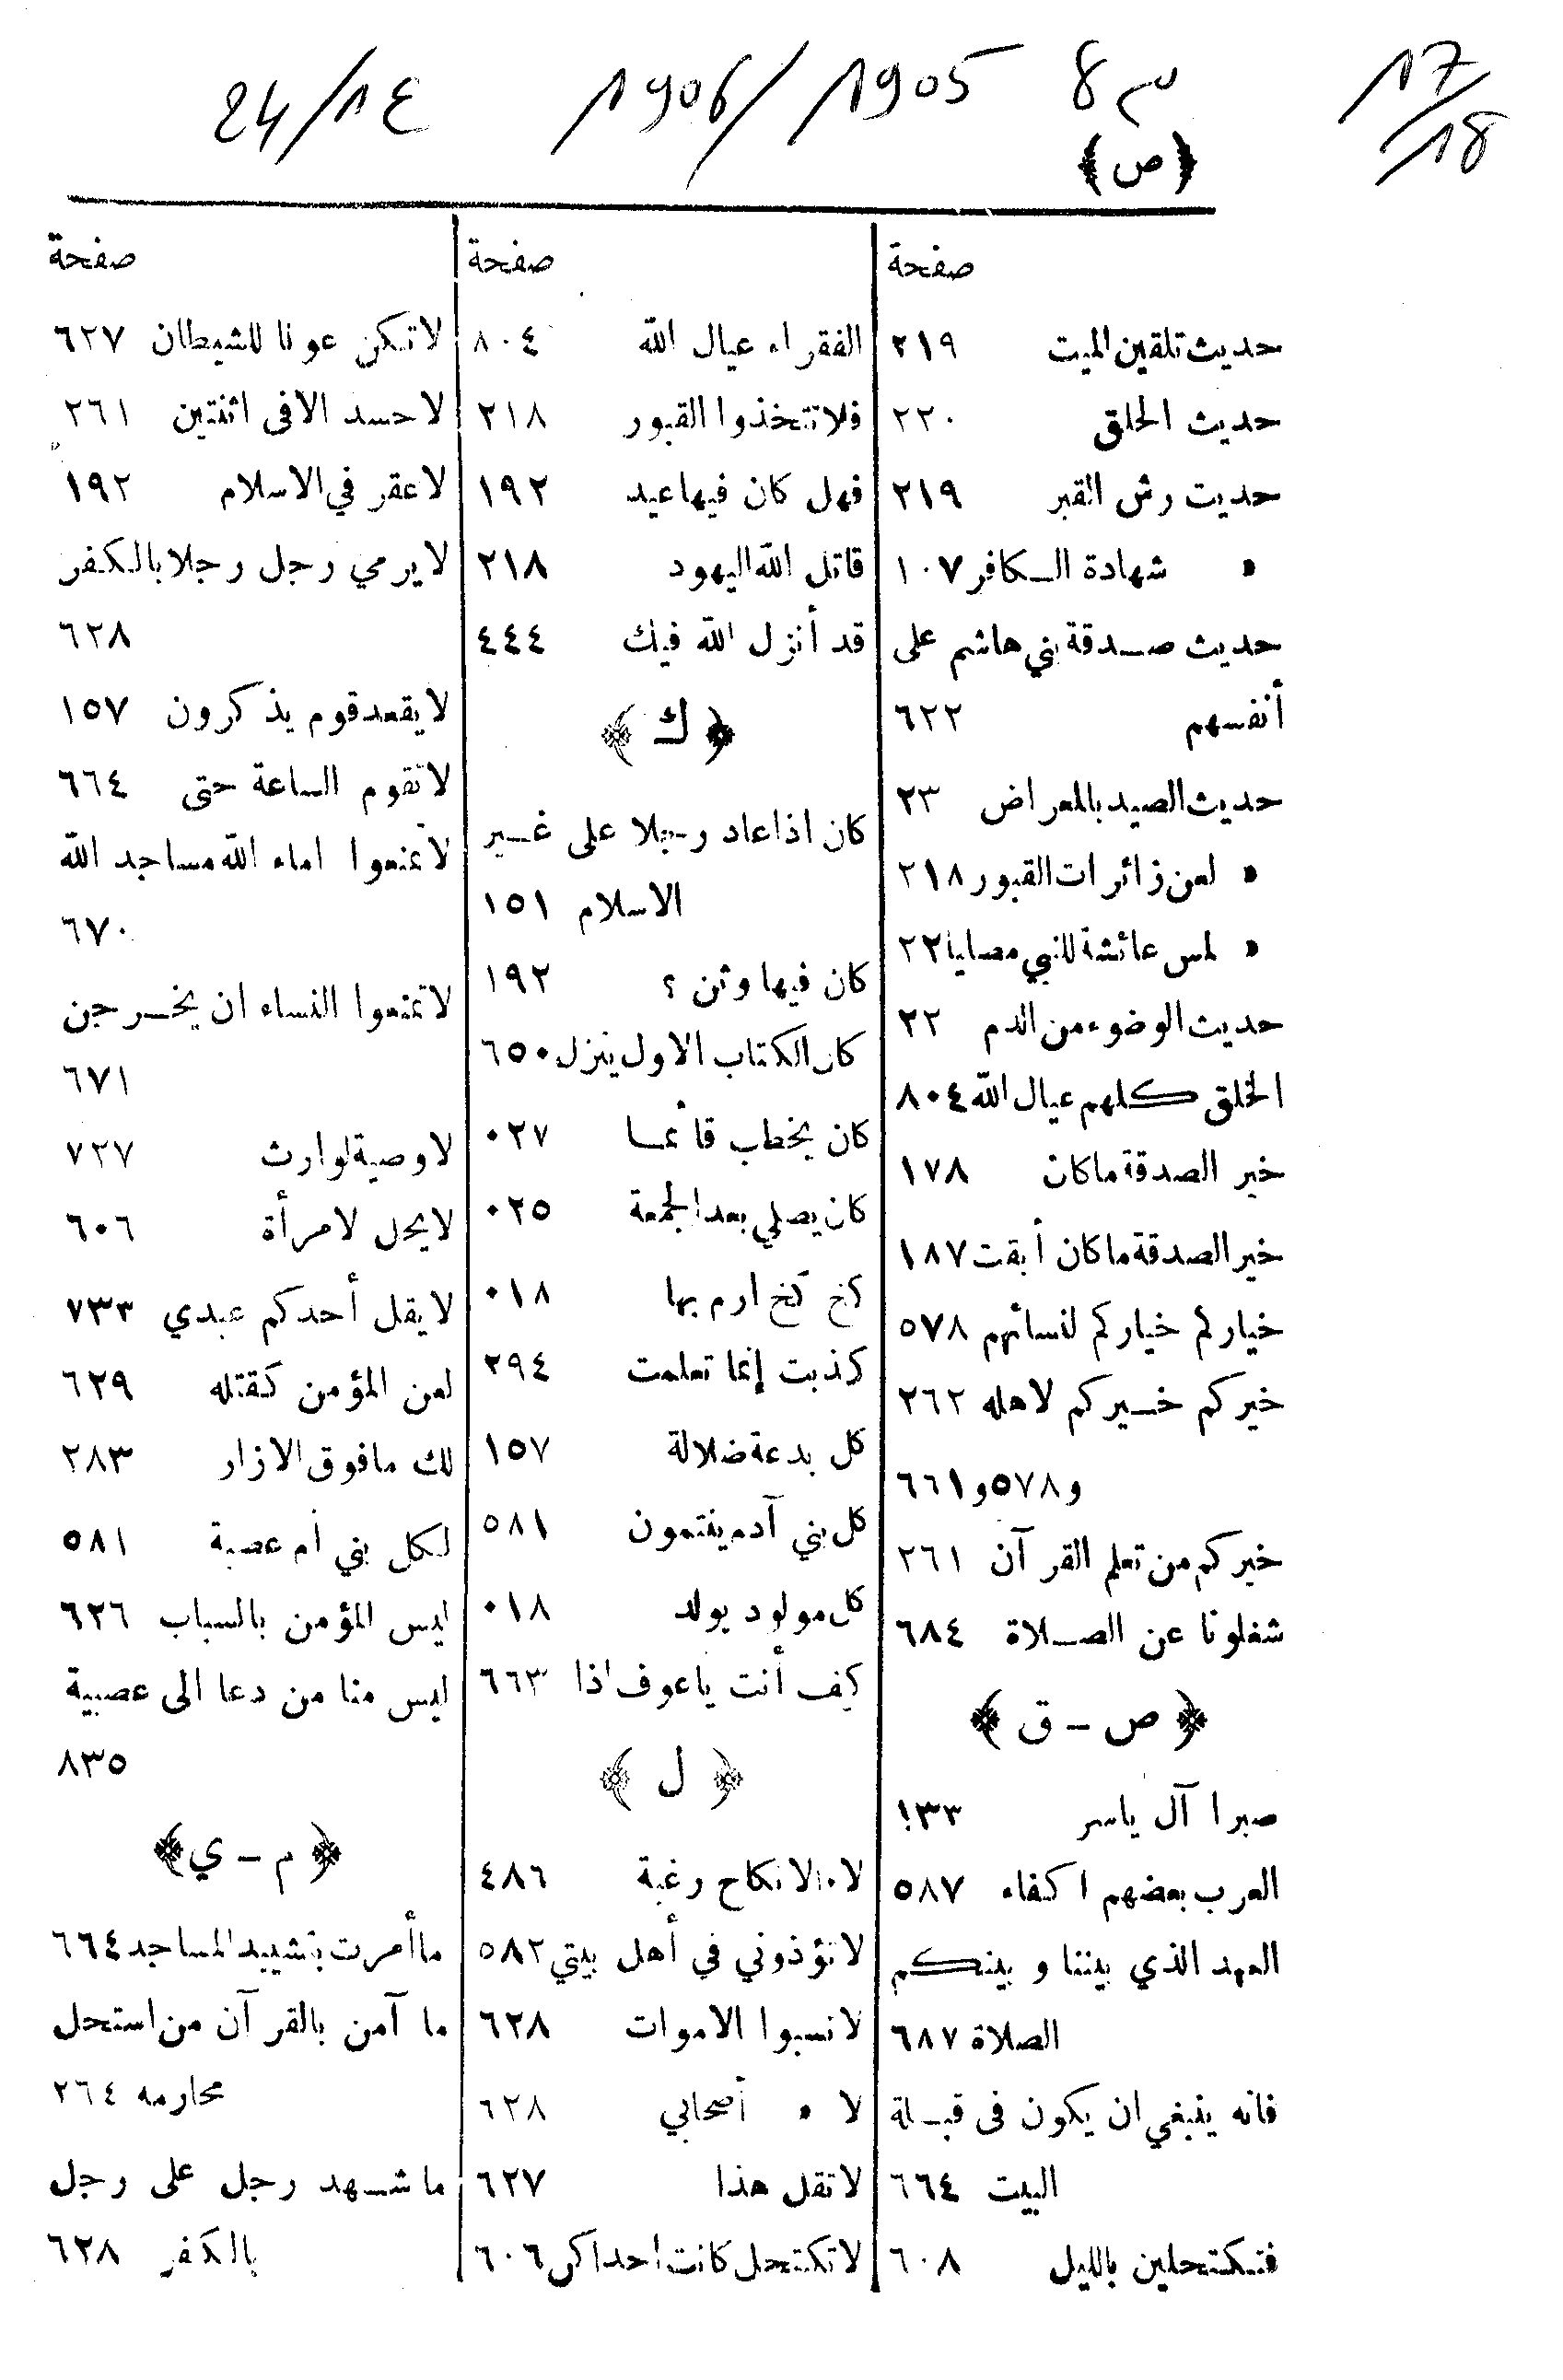 17/18
م 8 1905/1906 24/18
(ص)
صفحة
حديث تلقين الميت ٢١٩
حديث الحلق ٢٢٠
حديث رش القبر ٢١٩
» شهادة الكافر ١٠٧
حديث صدقة بني هاشم على
أنفسهم ٦٢٢
حديث الصيد بالمعراض ٢٣
» لعن زائرات القبور ٢١٨
» لمس عائشة للنبي مصليا ٢٢
حديث الوضوء من الدم ٢٢
الخلق كلهم عيال الله ٨٠٤
خير الصدقة ما كان ١٧٨
خير الصدقة ما كان أبقت ١٨٧
خياركم خياركم لنسائهم ٥٧٨
خيركم خيركم لاهله ٢٦٢
و٥٧٨ و٦٦١
خيركم من تعلم القرآن ٢٦١
شغلونا عن الصلاة ٦٨٤
﴿ ص - ق ﴾
صبرا آل ياسر ١٣٣
العرب بعضهم اكفاء ٥٨٧
العهد الذي بيننا وبينكم
الصلاة ٦٨٧
فانه ينبغي ان يكون في قبلة
البيت ٦٦٤
فتكتحلين بالليل ٦٠٨
صفحة
الفقراء عيال الله ٨٠٤
فلا تتخذوا القبور ٢١٨
فهل كان فيها عيد ١٩٢
قاتل الله اليهود ٢١٨
قد أنزل الله فيك ٤٤٤
﴿ ك ﴾
كان اذا عاد رجلا على غير
الاسلام ١٥١
كان فيها وثن ؟ ١٩٢
كان الكتاب الاول ينزل ٦٥٠
كان يخطب قائما ٠٢٧
كان يصلي بعد الجمعة ٠٢٥
كخ كخ ارم بها ٠١٨
كذبت إنما تعلمت ٢٩٤
كل بدعة ضلالة ١٥٧
كل بني آدم ينتمون ٥٨١
كل مولود يولد ٠١٨
كيف أنت يا عوف اذا ٦٦٣
﴿ ل ﴾
لا٠الا نكاح رغبة ٤٨٦
لا تؤذوني في أهل بيتي ٥٨٢
لا تسبوا الاموات ٦٢٨
لا » أصحابي ٦٢٨
لا تقل هذا ٦٢٧
لا تكتحل كانت احداكن ٦٠٦
صفحة
لا تكن عونا للشيطان ٦٢٧
لا حسد الا في اثنتين ٢٦١
لا عقر في الاسلام ١٩٢
لا يرمي رجل رجلا بالكفر
٦٢٨
لا يقعد قوم يذكرون ١٥٧
لا تقوم الساعة حتى ٦٦٤
لا تمنعوا اماء الله مساجد الله
٦٧٠
لا تمنعوا النساء ان يخرجن
٦٧١
لا وصية لوارث ٧٢٧
لا يحل لامرأة ٦٠٦
لا يقل أحدكم عبدي ٧٣٣
لعن المؤمن كقتله ٦٢٩
لك ما فوق الازار ٢٨٣
لكل بني أم عصبة ٥٨١
ليس المؤمن بالسباب ٦٢٦
ليس منا من دعا الى عصبية
٨٣٥
﴿ م - ي ﴾
ما أمرت بتشييد المساجد ٦٦٤
ما آمن بالقرآن من استحل
محارمه ٢٦٤
ما شهد رجل على رجل
بالكفر ٦٢٨